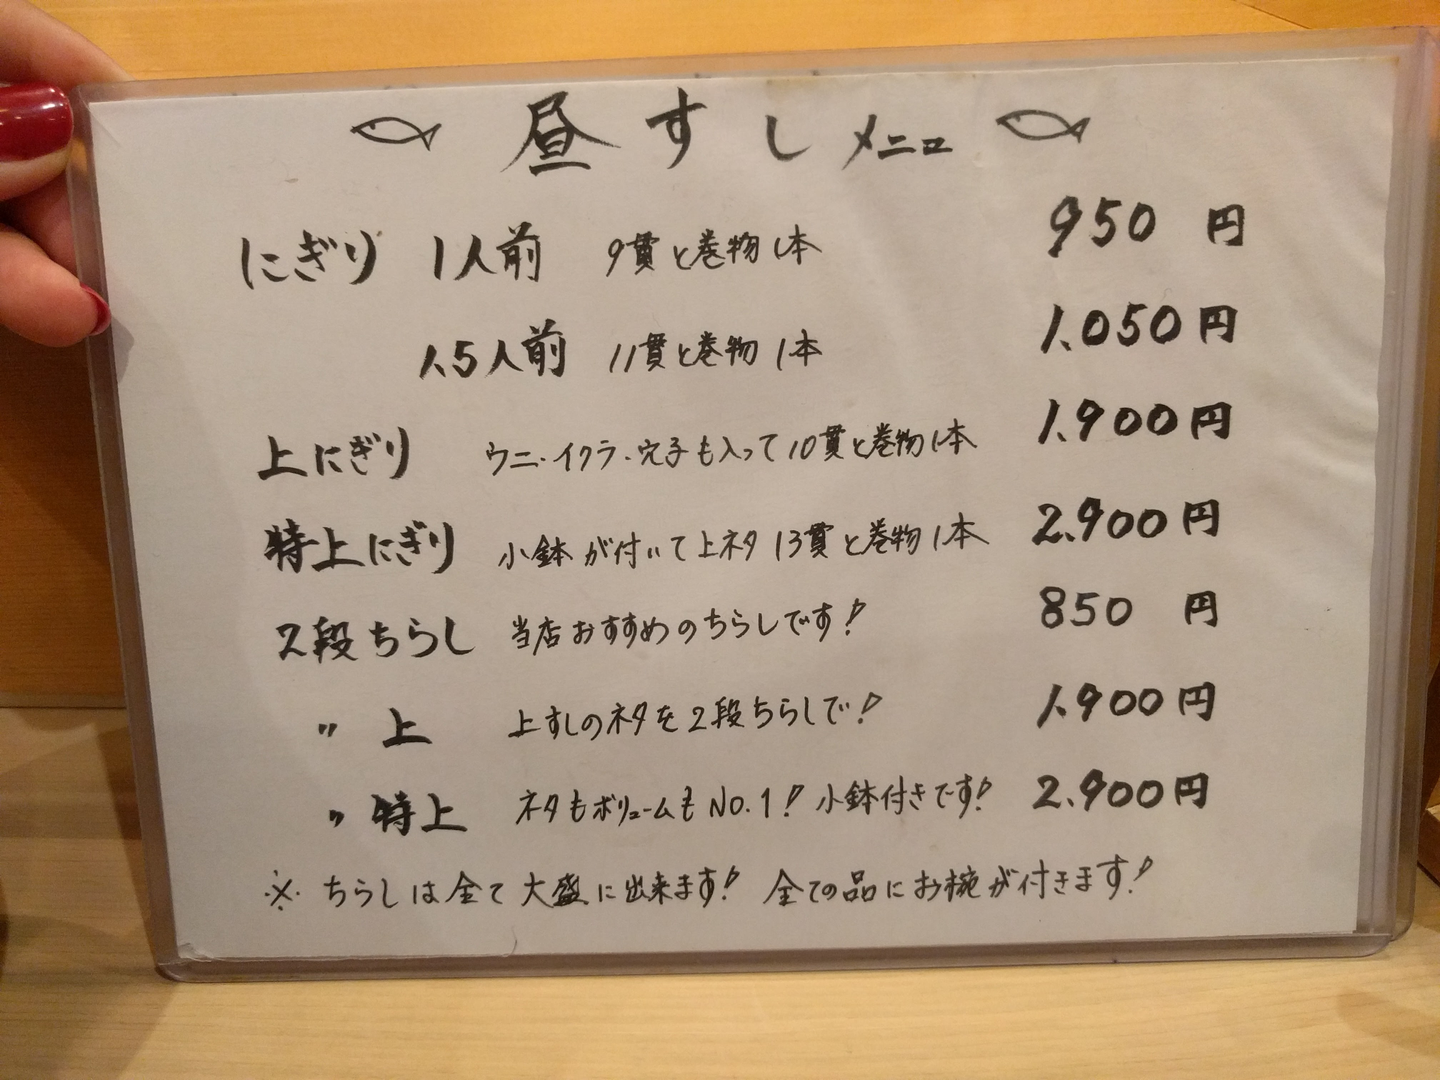 昼すしメニュー
にぎり 1人前 9貫と巻物1本 950円
1.5人前 11貫と巻物1本 1.050円
上にぎり ウニ・イクラ・穴子も入って10貫と巻物1本 1.900円
特上にぎり 小鉢が付いて上ネタ13貫と巻物1本 2.900円
2段ちらし 当店おすすめのちらしです! 850円
〃 上 上すしのネタを2段ちらしで! 1.900円
〃 特上 ネタもボリュームもNo.1! 小鉢付きです! 2.900円
※ ちらしは全て大盛に出来ます! 全ての品にお椀が付きます!